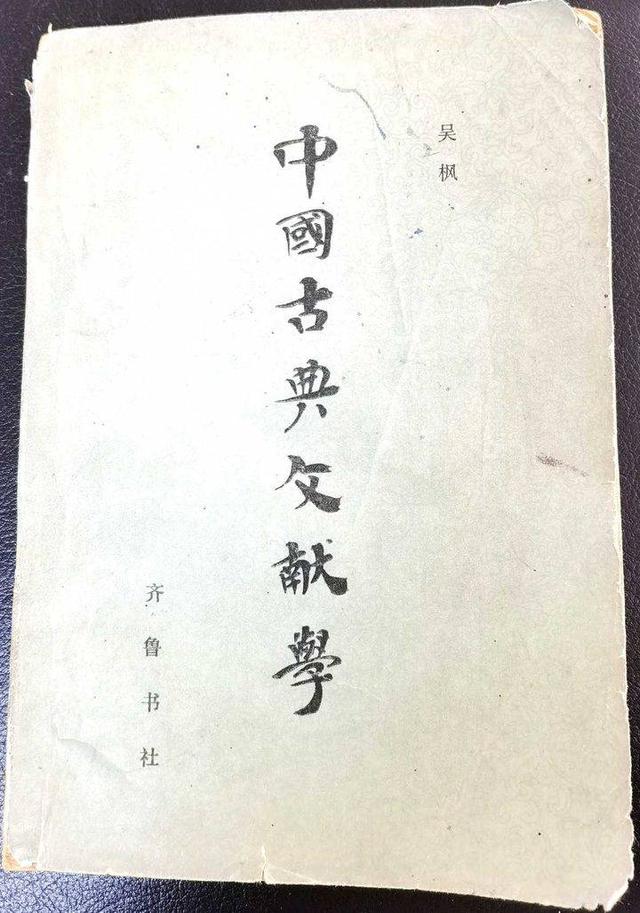 吴枫
中國古典文献學
齐鲁书社